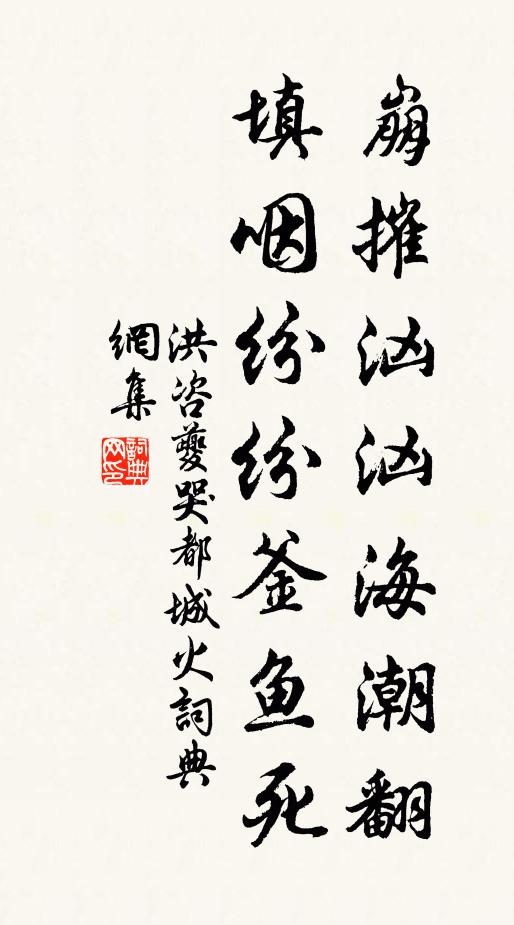 崩摧汹汹海潮翻
填咽纷纷釜鱼死
洪咨夔哭都城火詞典
網集
詞典
网印